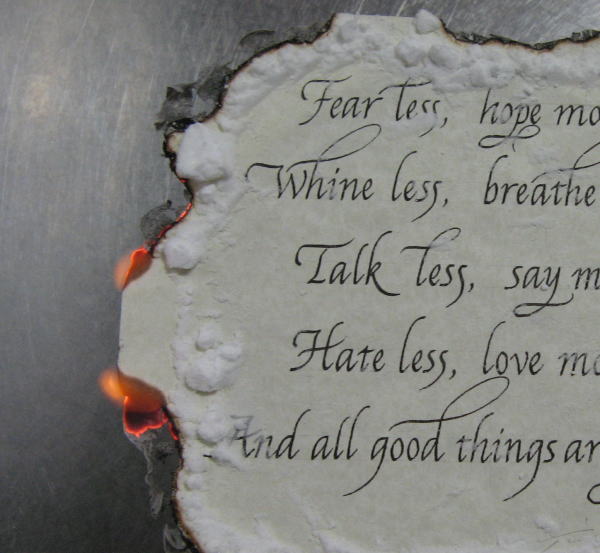 Fear less, hope mo
Whine less, breathe
Talk less, say m
Hate less, love mo
And all good things ar